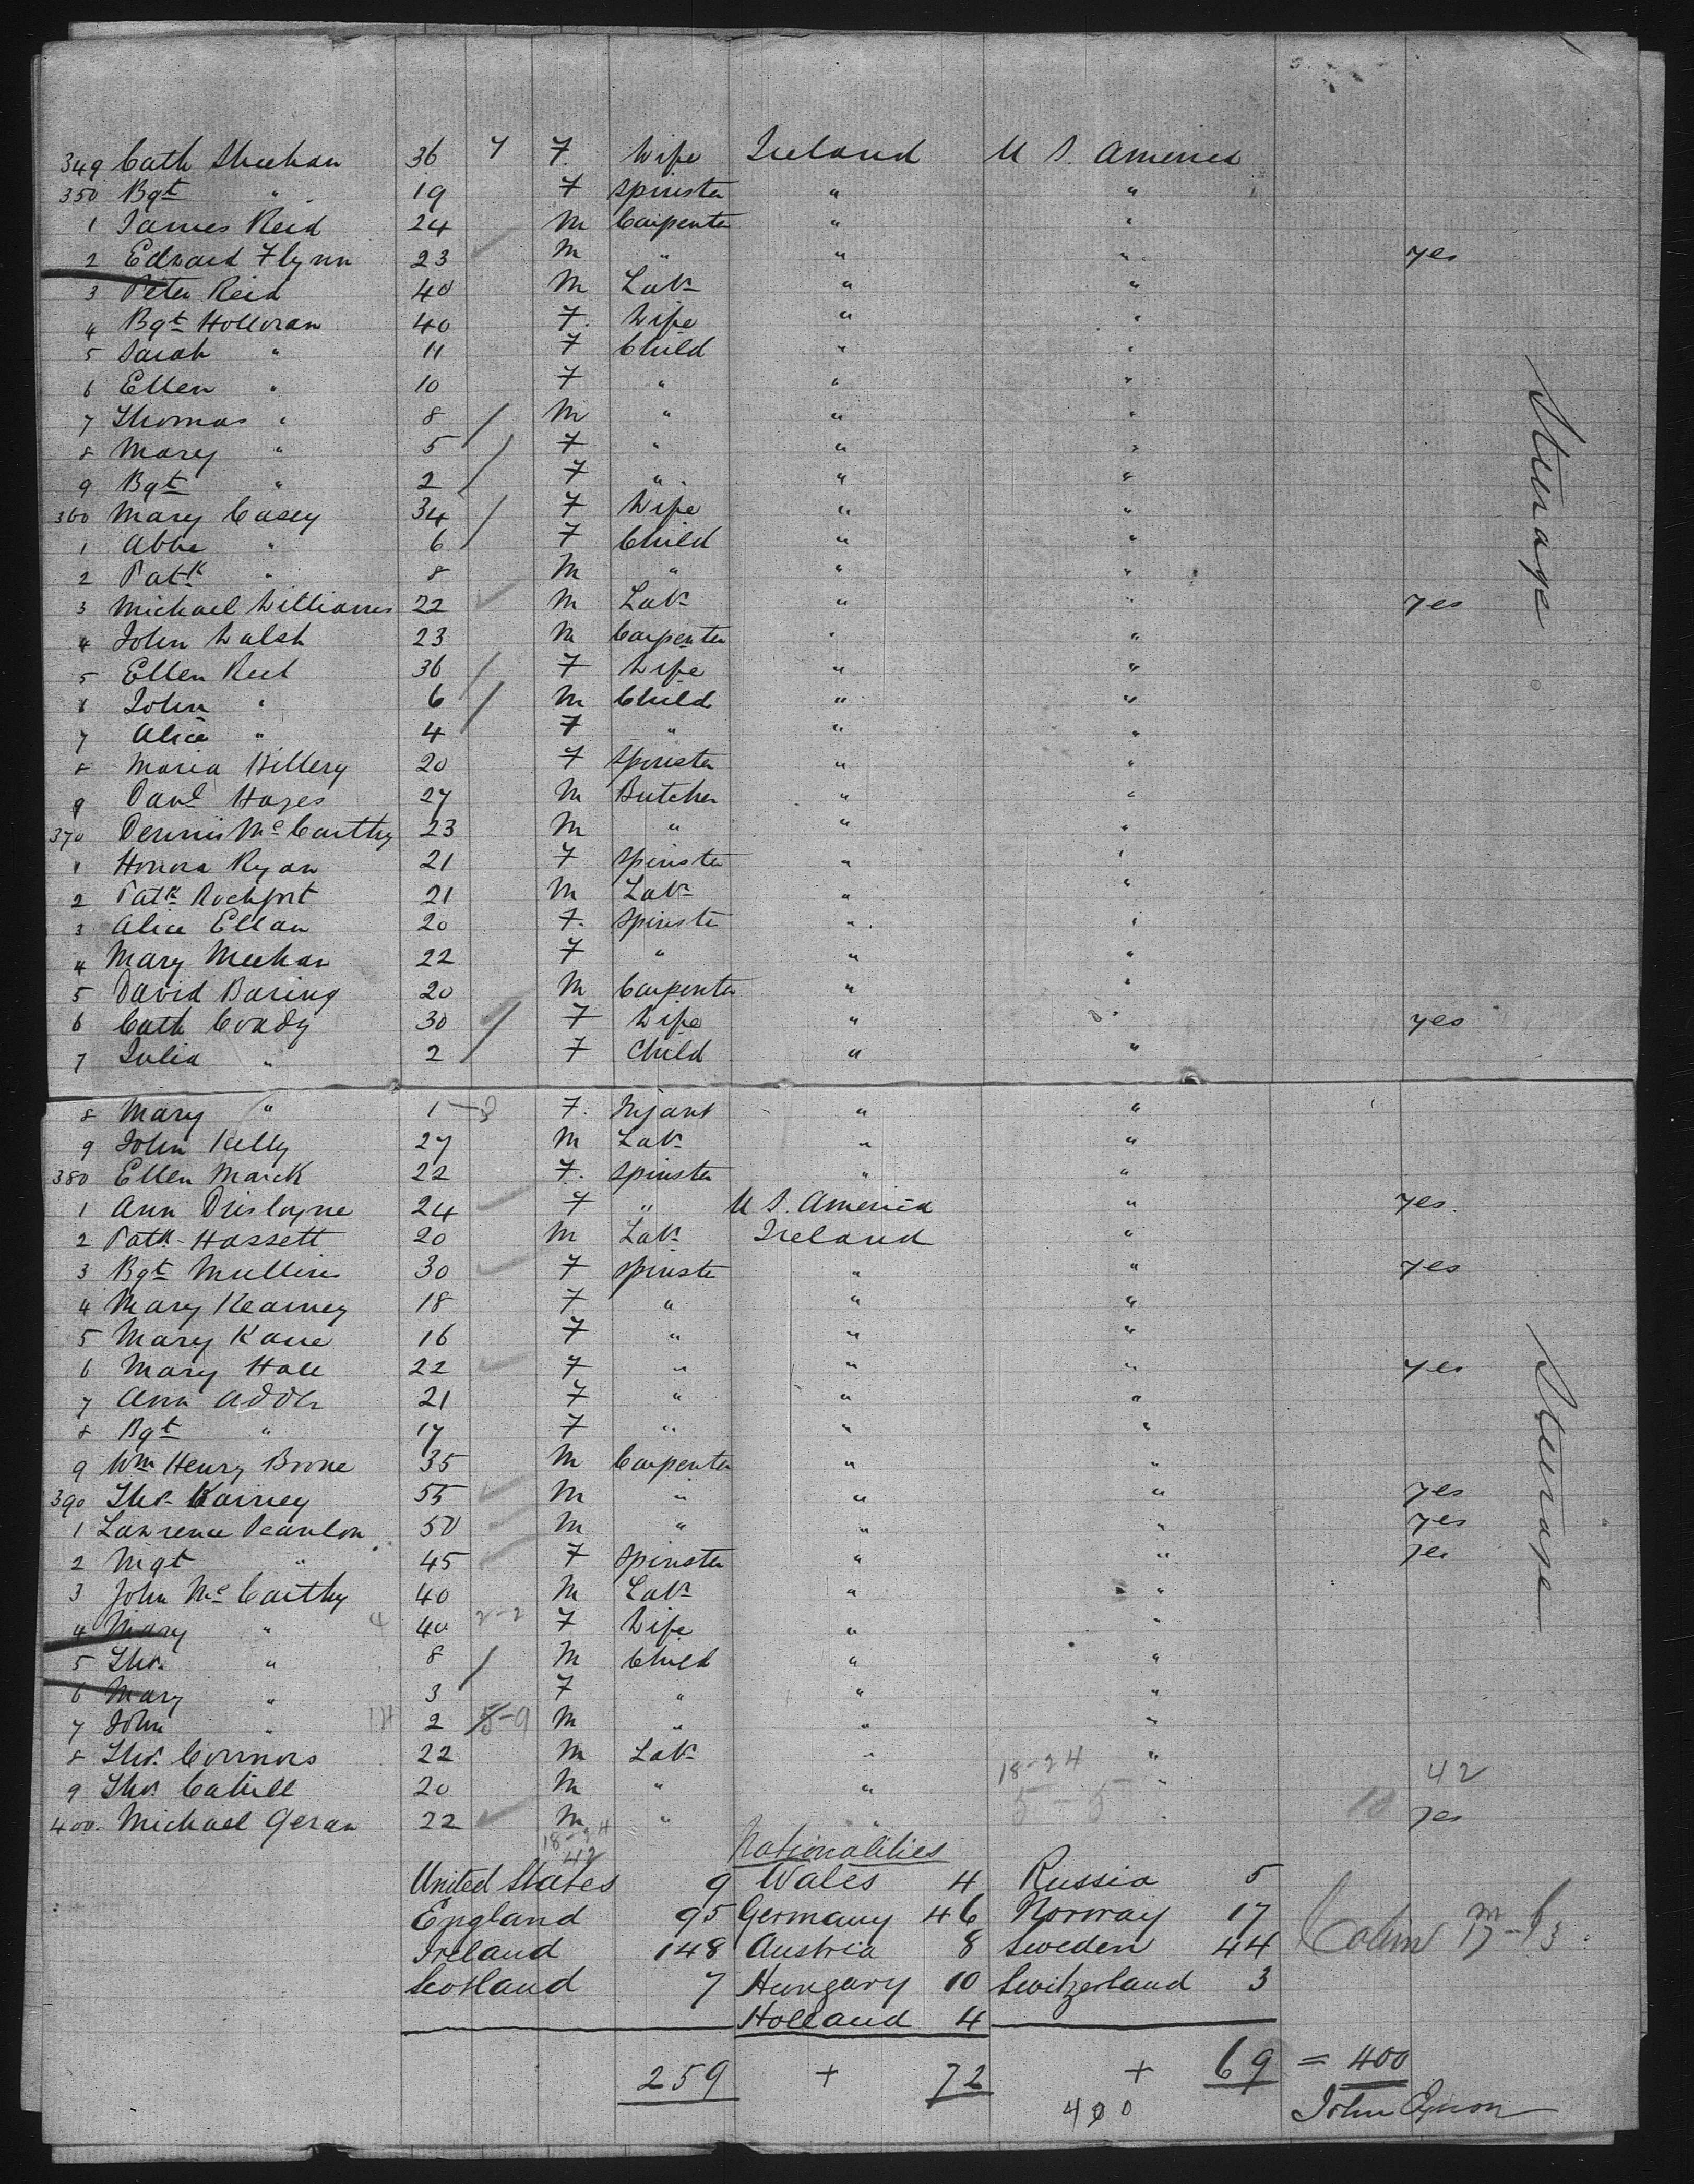 349 Cath Sheehan 36 7 F. Wife Ireland U S. America
350 Bgt " 19 F Spinster " "
1 James Reid 24 M Carpenter " "
2 Edward Flynn 23 M " " " yes
3 Peter Reid 40 M Labr " "
4 Bgt Holloran 40 F. Wife " "
5 Sarah " 11 F Child " "
6 Ellen " 10 F " " "
7 Thomas " 8 / M " " "
8 Mary " 5 / F " " "
9 Bgt " 2 / F " " "
360 Mary Casey 34 / F Wife " "
1 Abbe " 6 / F Child " "
2 Patk " 8 M " " "
3 Michael Williams 22 M Labr " " yes
4 John Walsh 23 M Carpenter " "
5 Ellen 36 / F Wife " "
6 John " 6 / M Child " "
7 Alice " 4 / F " " "
8 Maria Hillery 20 F Spinster " "
9 Danl Hayes 27 M Butcher " "
370 Dennis McCarthy 23 M " " "
1 Honora Ryan 21 F Spinster " "
2 Patk Rochfort 21 M Labr " "
3 Alice Ellan 20 F. Spinster " "
4 Mary Meehan 22 F " " "
5 David Baring 20 M Carpenter " "
6 Cath Coady 30 / F Wife " " yes
7 Julia " 2 / F Child " "
8 Mary " 1 F. Infant " "
9 John Kelly 27 M Labr " "
380 Ellen Marck 22 F. Spinster " "
1 Ann 24 F " U S. America " yes.
2 Patk Hassett 20 M Labr Ireland "
3 Bgt Mullins 30 F Spinster " " yes
4 Mary Kearney 18 F " " "
5 Mary Kane 16 F " " "
6 Mary Hall 22 F " " " yes
7 Ann 21 F " " "
8 Bgt " 17 F " " "
9 Wm Henry Boone 35 M Carpenter " "
390 Thos. Kairney 55 M " " " yes
1 Lawrence Scanlon 50 M " " " yes
2 Mgt " 45 F Spinster " " yes
3 John McCarthy 40 M Labr " "
4 Mary " 4 40 2-2 F Wife " "
5 Thos. " 8 / M Child " "
6 Mary " 3 F " " "
7 John " 14 2 5-9 M " " "
8 Thos. Connors 22 M Labr " "
9 Thos. Cahill 20 M " " 18-24 " 42
400. Michael Geran 22 M " " 5-5 " 10 yes
18-24
42
Nationalities
United States 9 Wales 4 Russia 5
England 95 Germany 46 Norway 17
Ireland 148 Austria 8 Sweden 44
Scotland 7 Hungary 10 Switzerland 3
Holland 4
259 + 72 + 69 = 400
400
John Eynon
Steerage
Steerage